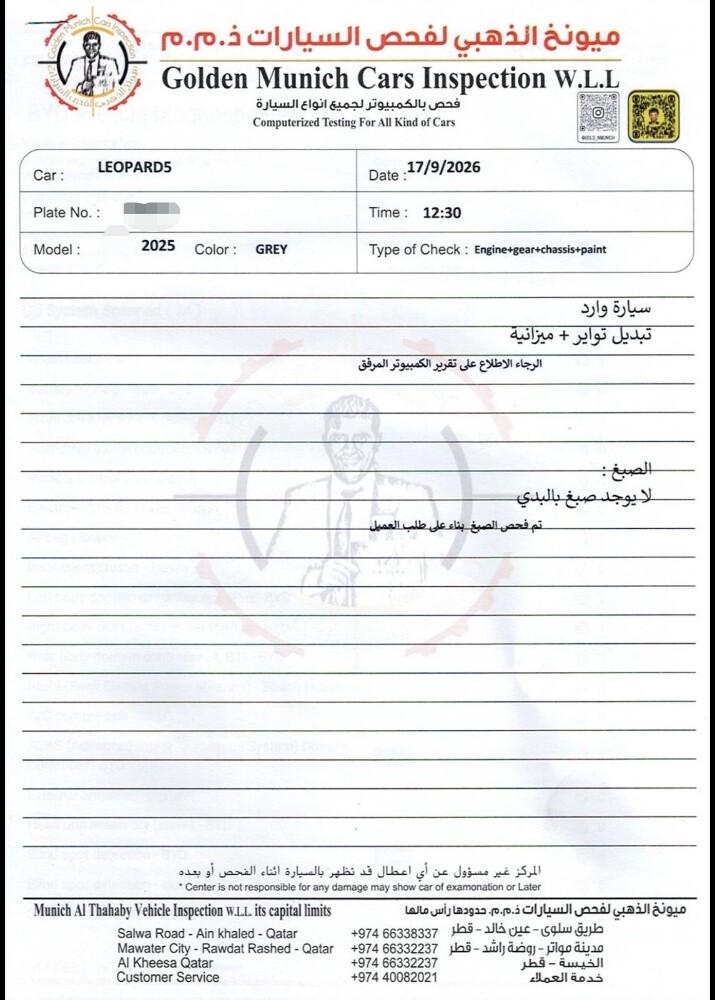 ميونخ الذهبي لفحص السيارات ذ.م.م
Golden Munich Cars Inspection W.L.L
فحص بالكمبيوتر لجميع انواع السيارة
Computerized Testing For All Kind of Cars
Car : LEOPARD5
Date : 17/9/2026
Plate No. :
Time : 12:30
Model : 2025 Color : GREY
Type of Check : Engine+gear+chassis+paint
سيارة وارد
تبديل تواير + ميزانية
الرجاء الاطلاع على تقرير الكمبيوتر المرفق
الصبغ :
لا يوجد صبغ بالبدي
تم فحص الصبغ بناء على طلب العميل
المركز غير مسؤول عن أي اعطال قد تظهر بالسيارة اثناء الفحص أو بعده
* Center is not responsible for any damage may show car of examonation or Later
Munich Al Thahaby Vehicle Inspection W.L.L. its capital limits
ميونخ الذهبي لفحص السيارات ذ.م.م. حدودها رأس مالها
Salwa Road - Ain khaled - Qatar +974 66338337 طريق سلوى - عين خالد - قطر
Mawater City - Rawdat Rashed - Qatar +974 66332237 مدينة مواتر - روضة راشد - قطر
Al Kheesa Qatar +974 66332237 الخيسة - قطر
Customer Service +974 40082021 خدمة العملاء